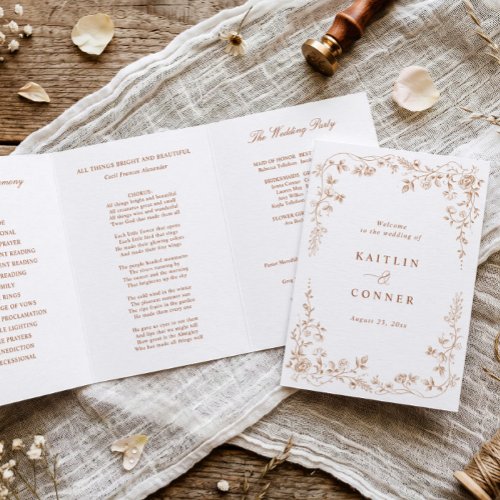 emony
SIONAL
PRAYER
ENT READING
T READING
EADING
LY
RINGS
GE OF VOWS
PROCLAMATION
LE LIGHTING
PRAYERS
NEDICTION
ECESSIONAL
ALL THINGS BRIGHT AND BEAUTIFUL
Cecil Frances Alexander
CHORUS:
All things bright and beautiful
All creatures great and small
All things wise and wonderful
Twas God that made them all
Each little flower that opens
Each little bird that sings
He made their glowing colors
And made their tiny wings
The purple headed mountain
The rivers running by
The sunset and the morning
That brightens up the sky
The cold wind in the winter
The pleasant summer sun
The ripe fruits in the garden
He made them every one
He gave us eyes to see them
And lips that we might tell
How great is the Almighty
Who has made all things well
The Wedding Party
MAID OF HONOR
Rebecca
BRIDESMAIDS
FLOWER
Welcome
to the wedding of
KAITLIN
&
CONNER
August 25, 20xx